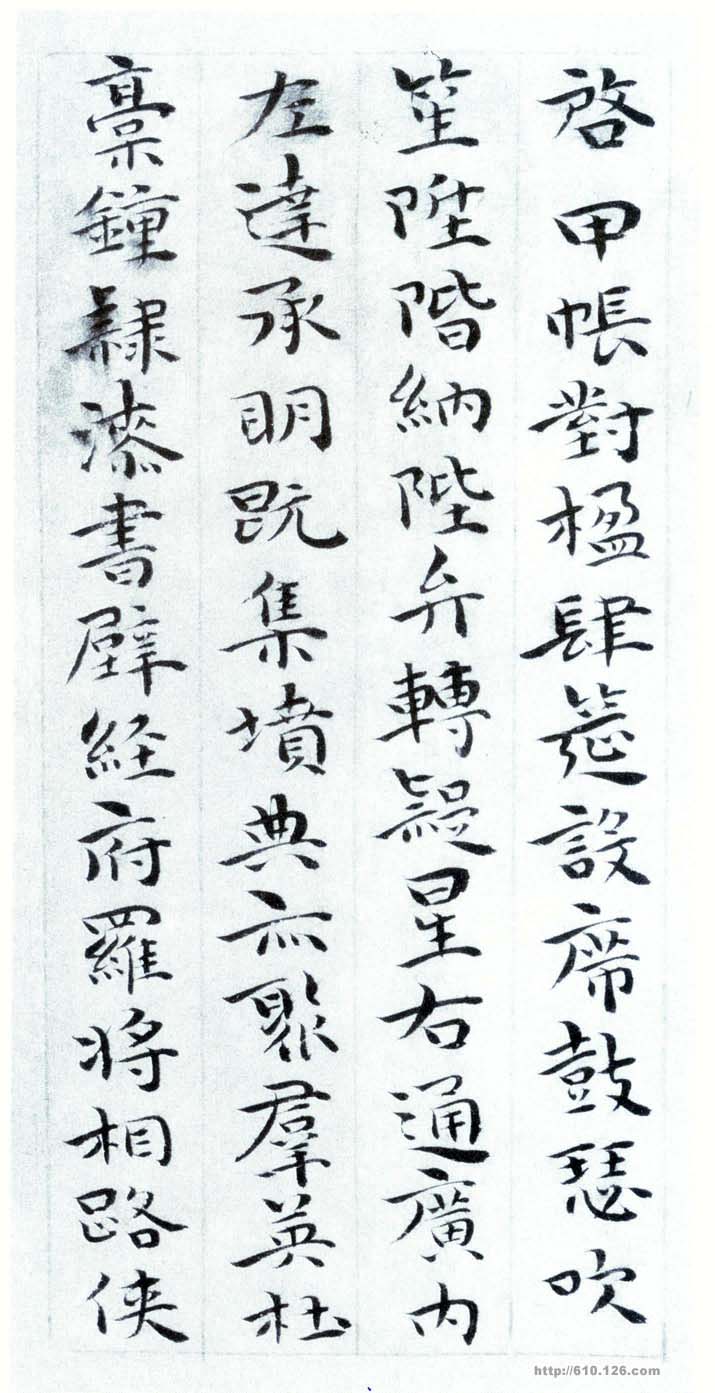 啓甲帳對楹肆筵設席鼓瑟吹
笙陞階納陛弁轉疑星右通廣內
左達承明既集墳典亦聚羣英杜
稾鍾隸漆書壁經府羅將相路俠
http://610.126.com